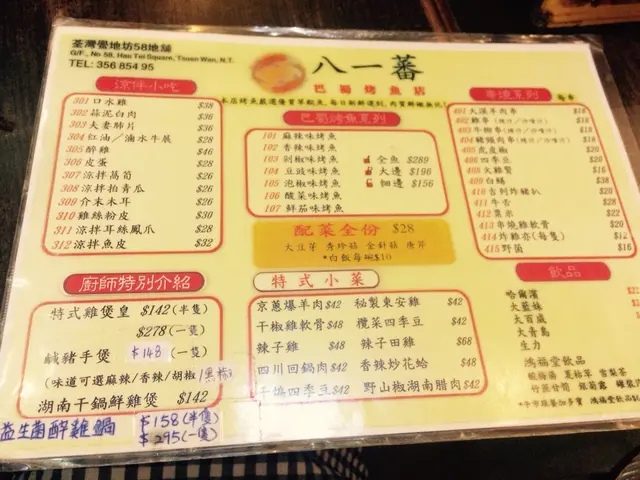 荃灣蠔地坊58地舖
G/F., No 58, Hau Tei Square, Tsuen Wan, N.T.
TEL: 356 854 95
八一蕃
巴蜀烤魚店
涼伴小吃
301 口水雞 $38
302 蒜泥白肉 $36
303 夫妻肺片 $36
304 紅油／滷水牛展 $28
305 醉雞 $46
306 皮蛋 $28
307 涼拌萵筍 $26
308 涼拌拍青瓜 $26
309 介末木耳 $26
310 雞絲粉皮 $30
311 涼拌耳絲鳳爪 $28
312 涼拌魚皮 $32
巴蜀烤魚系列
101 麻辣味烤魚
102 香辣味烤魚
103 剁椒味烤魚
104 豆豉味烤魚
105 泡椒味烤魚
106 酸菜味烤魚
107 鮮茄味烤魚
全魚 $289
大邊 $196
細邊 $156
配菜全份 $28
*白飯每碗$10
串燒系列
401 大漠羊肉串 $18
402 雞串
403 牛柳串
404 豬頸肉串
405 虎皮椒 $20
406 四季豆
407 火雞腎 $16
408 白鱔
410 吉列炸豬扒
411 牛舌
412 粟米
413 串燒雞軟骨
414 炸雞亦(每隻) $12
415 野菌 $16
廚師特別介紹
特式雞煲皇 $142 (半隻)
$278 (一隻)
鹹豬手煲 $148 (一隻)
(味道可選麻辣/香辣/胡椒/黑椒)
湖南干鍋鮮雞煲 $142
益生菌醉雞鍋 $158 (半隻)
$295 (一隻)
特式小菜
京蔥爆羊肉 $42
干椒雞軟骨 $48
辣子雞 $48
四川回鍋肉 $42
干煸四季豆 $42
秘製東安雞 $42
欖菜四季豆 $42
辣子田雞 $68
香辣炒花蛤 $48
野山椒湖南腊肉 $42
飲品
哈爾濱
大藍妹
大百威
大青島
生力
鴻福堂飲品